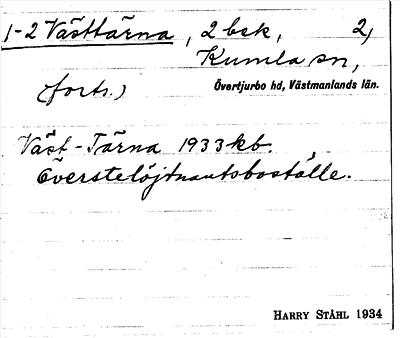 1-2 Västtärna, 2 bsk, 2,
Kumla sn,
(forts.) Övertjurbo hd, Västmanlands län.
Väst-Tärna 1933 kb.
Överstelöjtnantsboställe.
HARRY STÅHL 1934